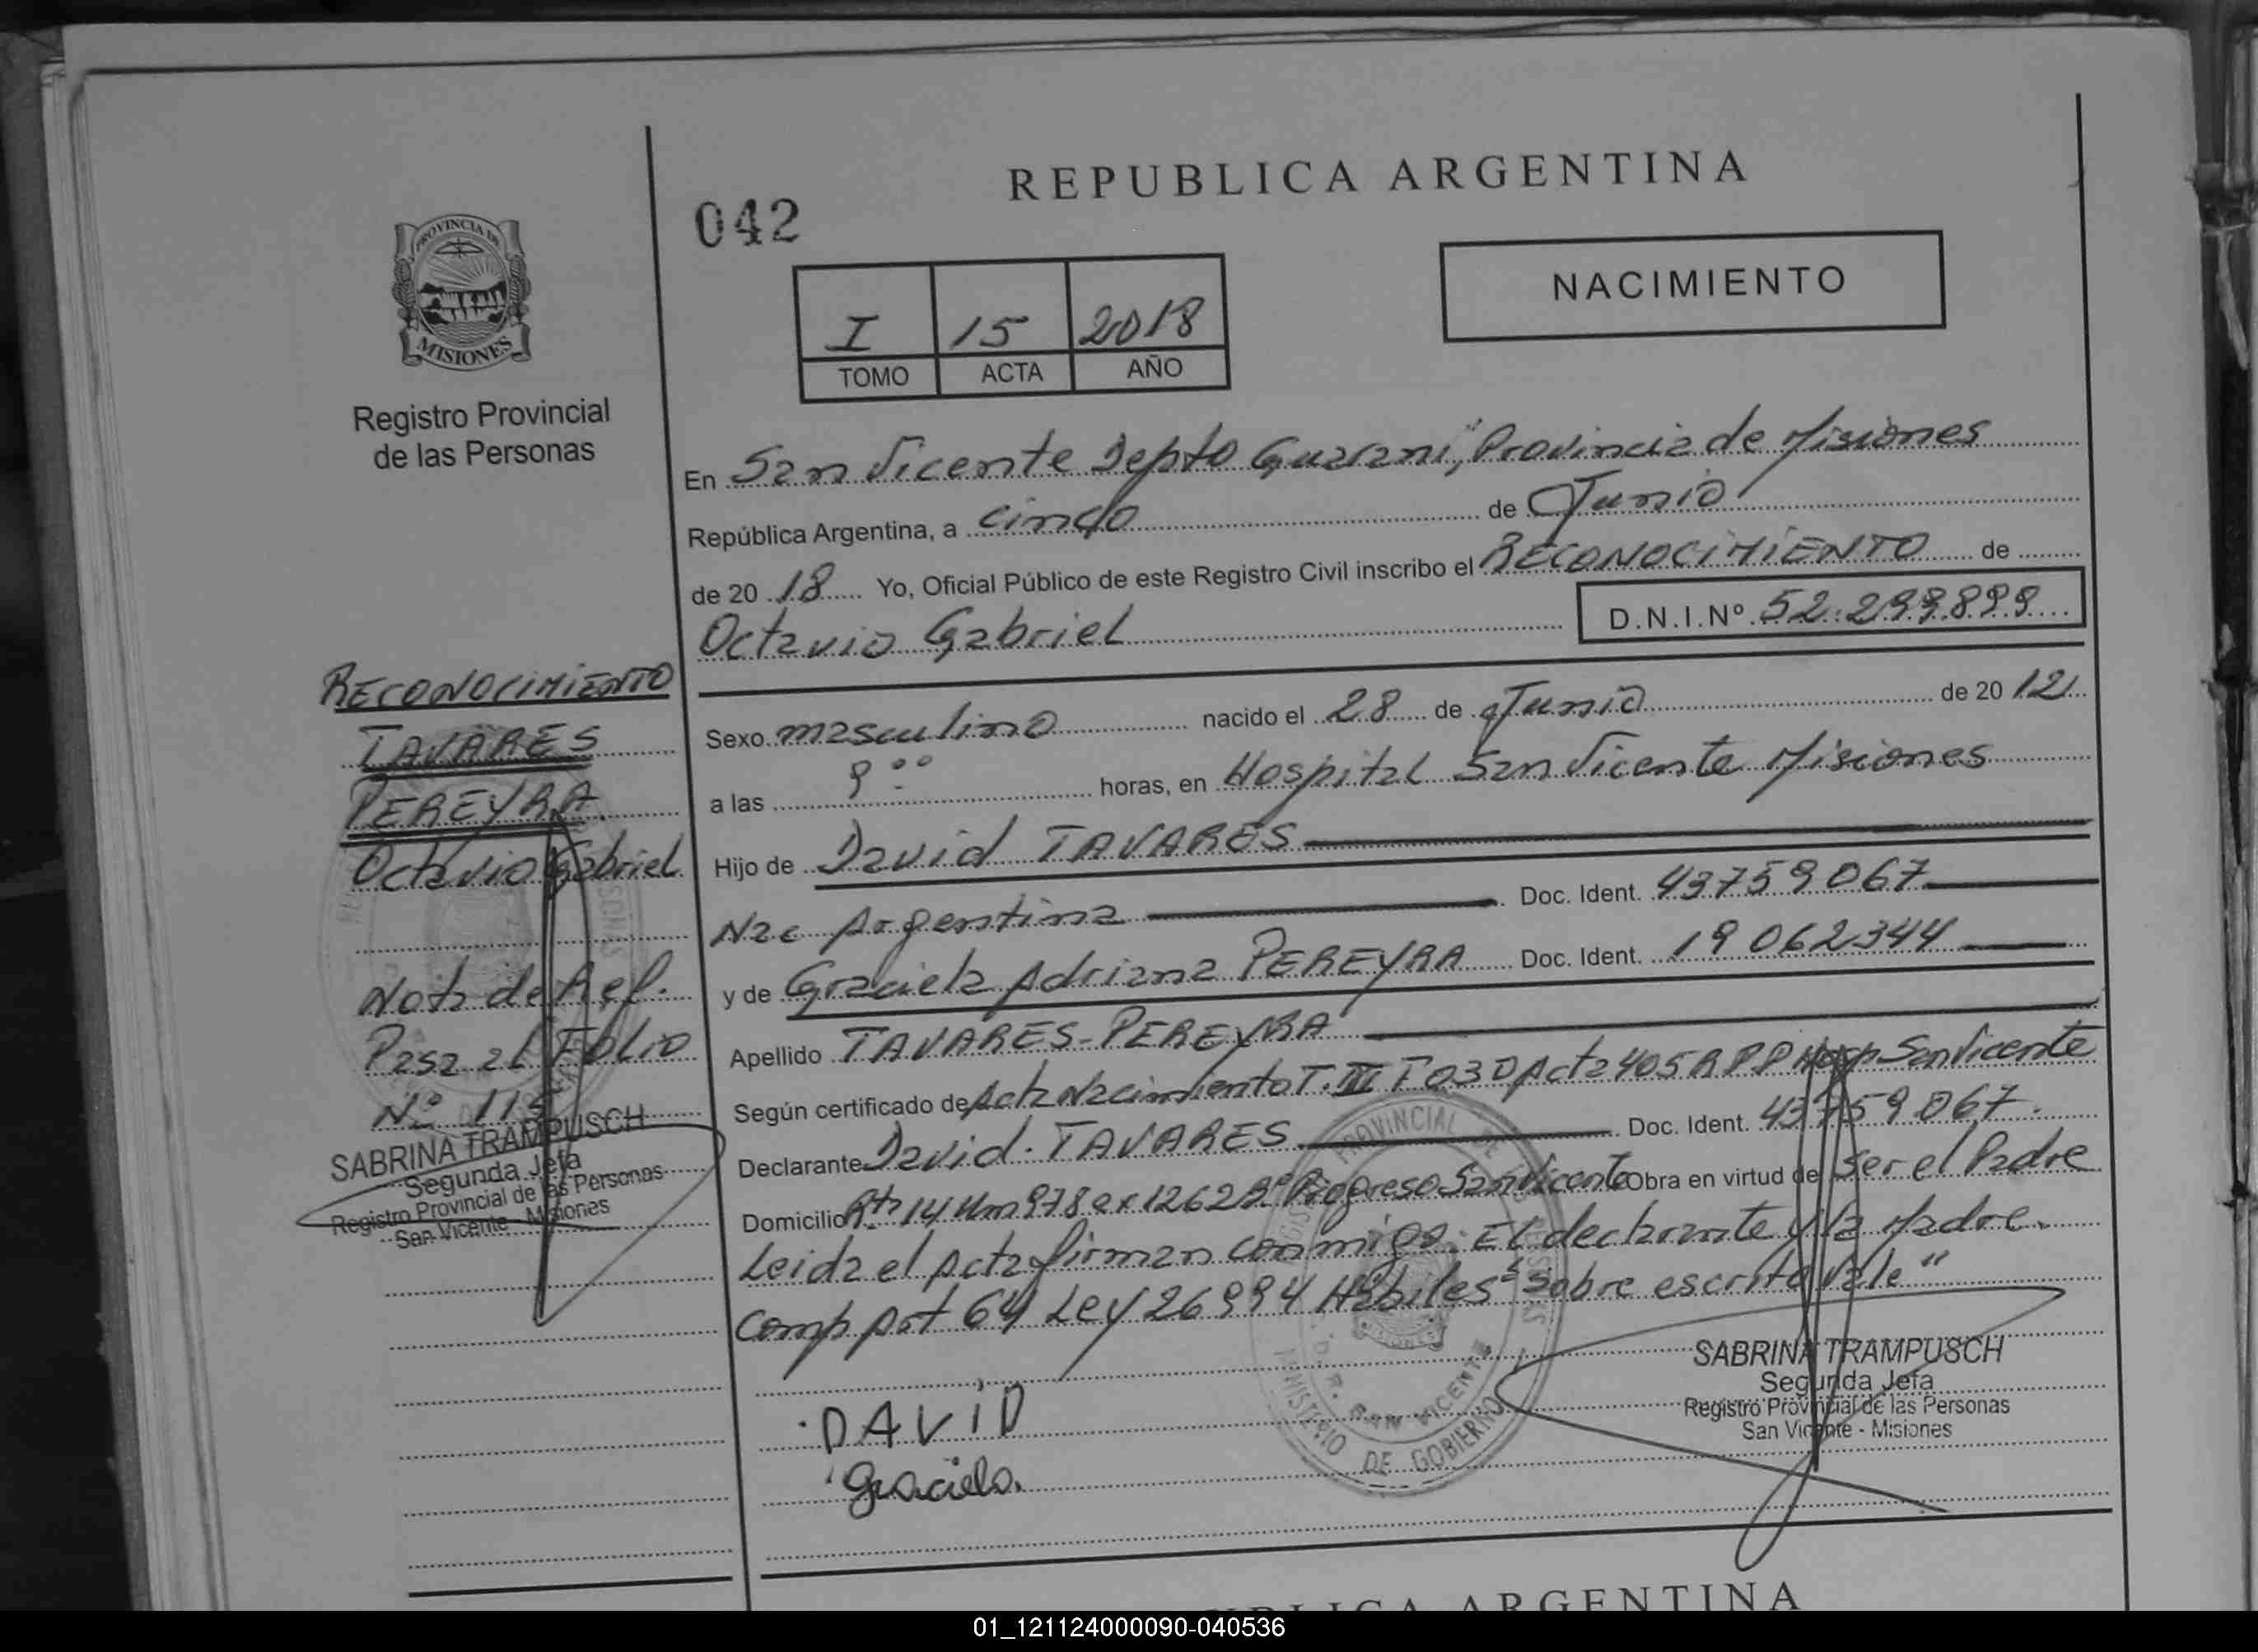 REPUBLICA ARGENTINA
042
NACIMIENTO
I 15 2018
TOMO ACTA AÑO
PROVINCIA DE
MISIONES
Registro Provincial
de las Personas
En San Vicente Depto Guarani, Provincia de Misiones
República Argentina, a cinco de Junio
de 20 18 Yo, Oficial Público de este Registro Civil inscribo el RECONOCIMIENTO de
Octavio Gabriel D.N.I.Nº 52.299.899
Sexo masculino nacido el 28 de Junio de 20 12
a las 9 ºº horas, en Hospital San Vicente Misiones
Hijo de David TAVARES
Nac Argentina Doc. Ident. 43759067
y de Graciela Adriana PEREYRA Doc. Ident. 19062344
Apellido TAVARES-PEREYRA
Según certificado de Acta Nacimiento T. III F 030 Acta 405 RPP Hosp San Vicente
Declarante David TAVARES Doc. Ident. 43759067.
Domicilio Rta 14 Km 978 ex 1262 Bº Progreso San Vicente Obra en virtud de ser el Padre
Leida el Acta firman conmigo. El declarante y la Madre.
Comp Art 64 Ley 26994 Habiles "Sobre escrito Vale"
DAVID
Graciela.
SABRINA TRAMPUSCH
Segunda Jefa
Registro Provincial de las Personas
San Vicente - Misiones
MINISTERIO DE GOBIERNO
SAN VICENTE
RECONOCIMIENTO
TAVARES
PEREYRA
Octavio Gabriel
Nota de Ref.
Pasa al Folio
Nº 115
SABRINA TRAMPUSCH
Segunda Jefa
Registro Provincial de las Personas
San Vicente - Misiones
ARGENTINA
01_121124000090-040536